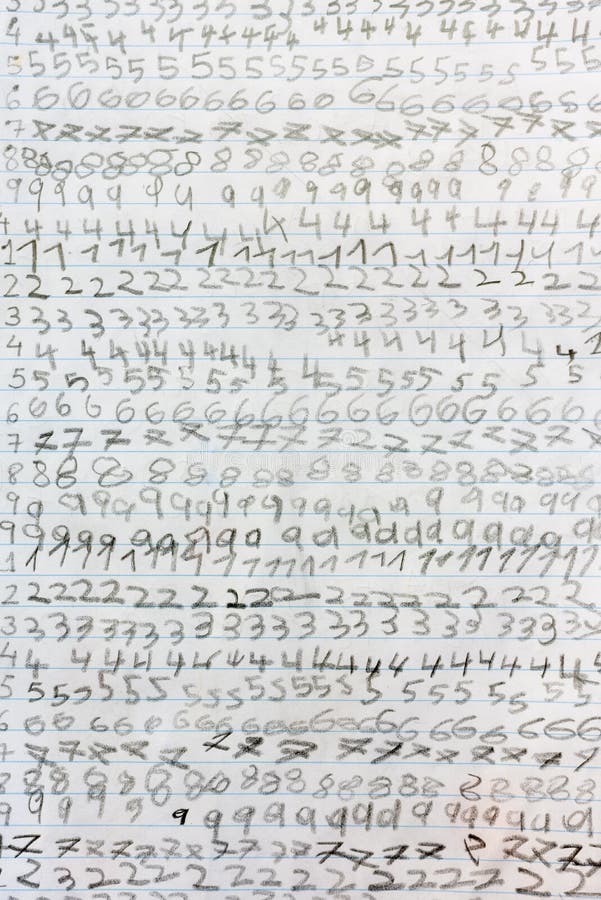 3 3 3 3 3 3 3 3 3 3 3 3 3 3 3 3 3 3 3 3 3 3
4 4 4 4 4 4 4 4 4 4 4 4 4 4 4 4 4 4 4 4 4 4
5 5 5 5 5 5 5 5 5 5 5 5 5 5 5 5 5 5 5 5 5 5 5 5
6 6 6 6 6 6 6 6 6 6 6 6 6 6 6 6 6 6 6 6 6 6 6
7 7 7 7 7 7 7 7 7 7 7 7 7 7 7 7 7 7 7 7
8 8 8 8 8 8 8 8 8 8 8 8 8 8 8 8 8 8 8 8 8 8 8
9 9 9 9 9 9 9 9 9 9 9 9 9 9 9 9 9 9 9 9 9
4 4 4 4 4 4 4 4 4 4 4 4 4 4 4 4 4 4 4 4
1 1 1 1 1 1 1 1 1 1 1 1 1 1 1 1 1 1 1 1 1 1
2 2 2 2 2 2 2 2 2 2 2 2 2 2 2 2 2 2 2 2 2 2 2
3 3 3 3 3 3 3 3 3 3 3 3 3 3 3 3 3 3 3 3 3
4 4 4 4 4 4 4 4 4 4 4 4 4 4 4 4 4 4 4 4
5 5 5 5 5 5 5 5 5 5 5 5 5 5 5 5 5 5 5 5 5
6 6 6 6 6 6 6 6 6 6 6 6 6 6 6 6 6 6 6 6 6 6
7 7 7 7 7 7 7 7 7 7 7 7 7 7 7 7 7 7 7
8 8 8 8 8 8 8 8 8 8 8 8 8 8 8 8 8 8 8 8
9 9 9 9 9 9 9 9 9 9 9 9 9 9 9 9 9 9 9 9 9 9
9 9 9 9 9 9 9 9 9 9 9 9 9 9 9 9 9 9 9 9 9
1 1 1 1 1 1 1 1 1 1 1 1 1 1 1 1 1 1 1 1 1 1 1 1 1
2 2 2 2 2 2 2 2 2 2 2 2 2 2 2 2 2 2 2 2
3 3 3 3 3 3 3 3 3 3 3 3 3 3 3 3 3 3 3 3 3 3
4 4 4 4 4 4 4 4 4 4 4 4 4 4 4 4 4 4 4 4 4 4
5 5 5 5 5 5 5 5 5 5 5 5 5 5 5 5 5 5 5 5 5
6 6 6 6 6 6 6 6 6 6 6 6 6 6 6 6 6 6 6 6 6
7 7 7 7 7 7 7 7 7 7 7 7 7 7 7 7 7 7 7
8 8 8 8 8 8 8 8 8 8 8 8 8 8 8 8 8 8 8 8 8
9 9 9 9 9 9 9 9 9 9 9 9 9 9 9 9 9 9 9 9
7 7 7 7 7 7 7 7 7 7 7 7 7 7 7 7 7 7 7
2 2 3 2 2 2 2 2 2 2 2 2 2 2 2 2 2 2